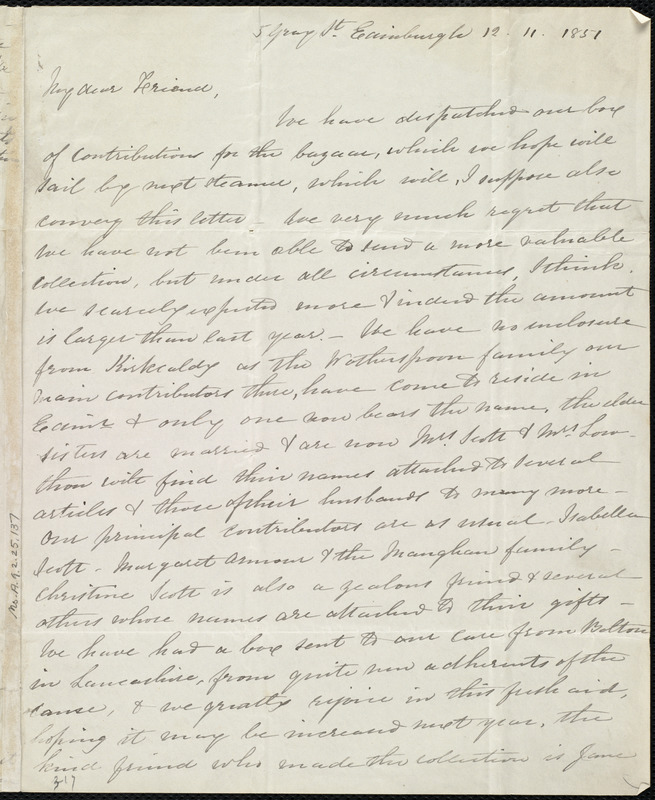 5 Gray St. Edinburgh 12. 11. 1851
My dear Friend,
We have despatched our box
of contributions for the bazaar, which we hope will
sail by next steamer, which will, I suppose also
convey this letter - We very much regret that
we have not been able to send a more valuable
collection, but under all circumstances, I think
we scarcely expected more & indeed the amount
is larger than last year. - We have no enclosure
from Kirkcaldy as the Wotherspoon family our
main contributors there, have come to reside in
Edinr & only one now bears the name, the elder
sisters are married & are now Mrs Scott & Mrs Low -
thou wilt find their names attached to several
articles & those of their husbands to many more -
Our principal contributors are as usual - Isabella
Scott - Margaret Armour & the Maughan family -
Christine Scott is also a zealous friend & several
others whose names are attached to their gifts -
We have had a box sent to our care from Bolton
in Lancashire, from quite new adherents of the
cause, & we greatly rejoice in this fresh aid,
hoping it may be increased next year, the
kind friend who made the collection is Jane
317
Ms.A.9.2.25.137